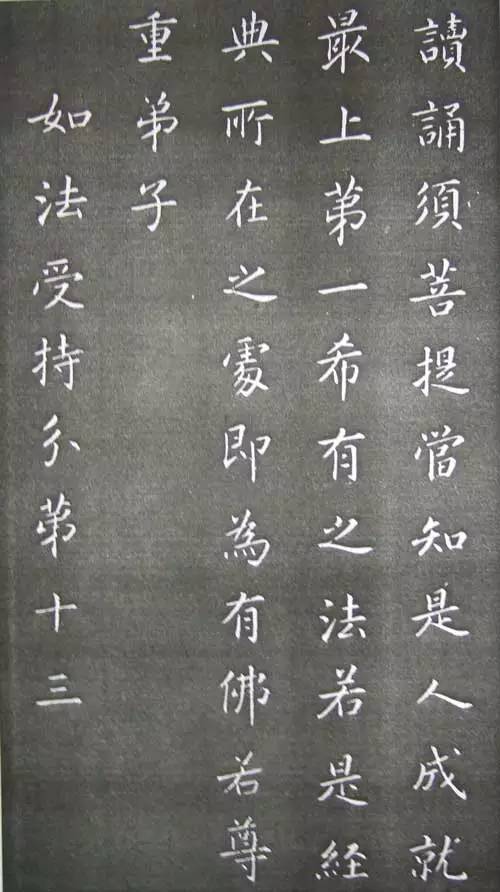 讀誦須菩提當知是人成就
最上第一希有之法若是經
典所在之處即為有佛若尊
重弟子
如法受持分第十三